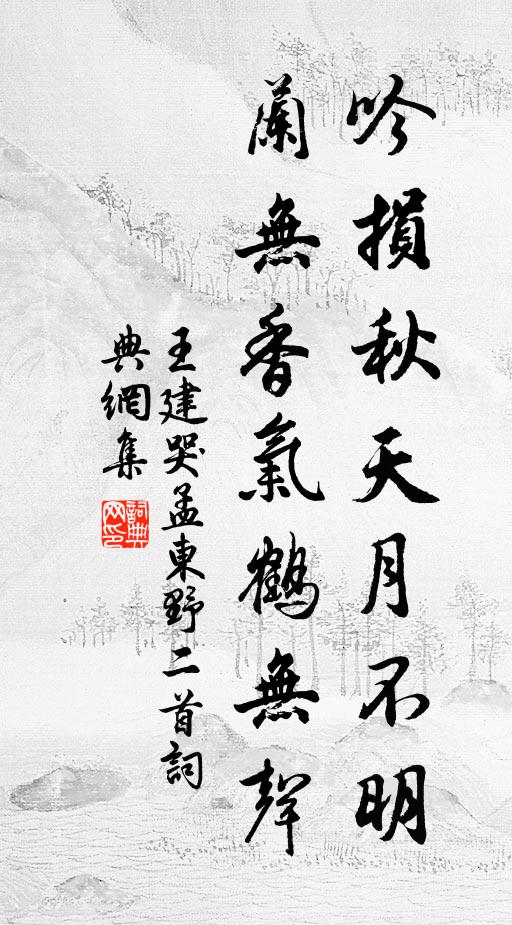 吟損秋天月不明
蘭無香氣鶴無聲
王建哭孟東野二首詞
典網集
詞典
网印